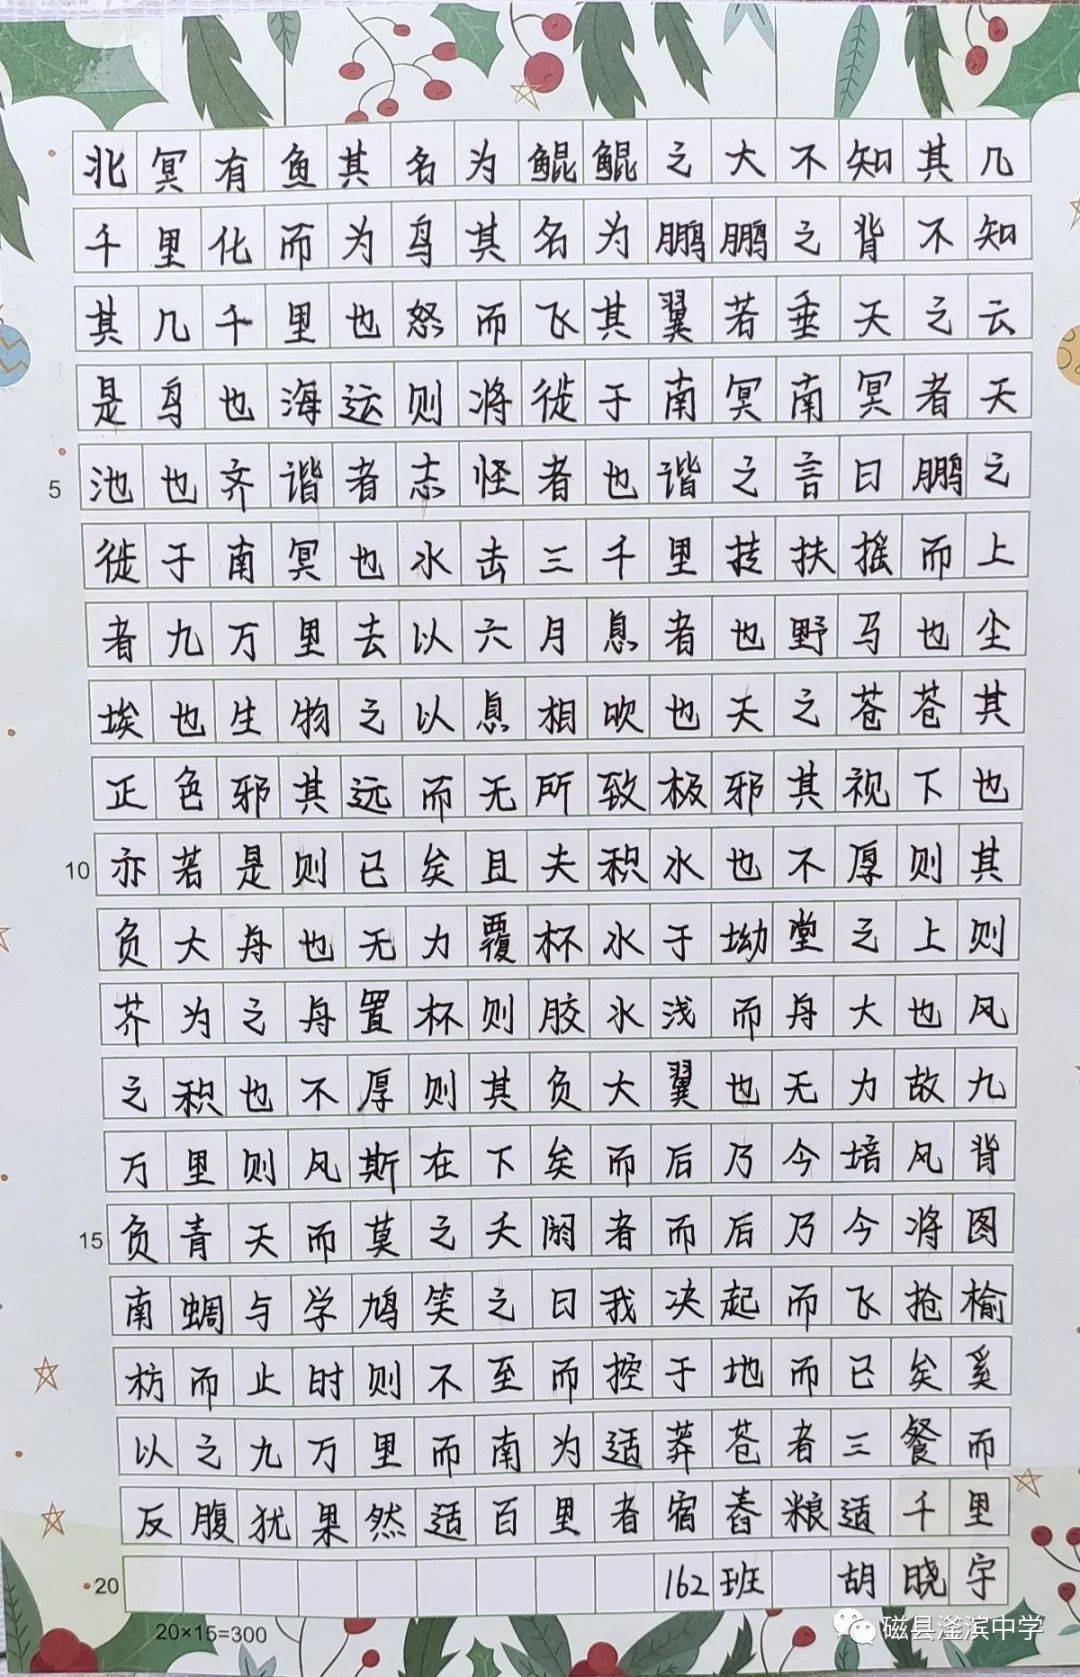 北冥有鱼其名为鲲鲲之大不知其几
千里化而为鸟其名为鹏鹏之背不知
其几千里也怒而飞其翼若垂天之云
是鸟也海运则将徙于南冥南冥者天
5 池也齐谐者志怪者也谐之言曰鹏之
徙于南冥也水击三千里技扶摇而上
者九万里去以六月息者也野马也尘
埃也生物之以息相吹也天之苍苍其
正色邪其远而无所致极邪其视下也
10 亦若是则已矣且夫积水也不厚则其
负大舟也无力覆杯水于坳堂之上则
芥为之舟置杯则胶水浅而舟大也风
之积也不厚则其负大翼也无力故九
万里则风斯在下矣而后乃今培风背
15 负青天而莫之夭阏者而后乃今将图
南蜩与学鸠笑之曰我决起而飞抢榆
枋而止时则不至而控于地而已矣奚
以之九万里而南为适莽苍者三餐而
反腹犹果然适百里者宿舂粮适千里
20 162班 胡晓宇
20×15=300
磁县滏滨中学